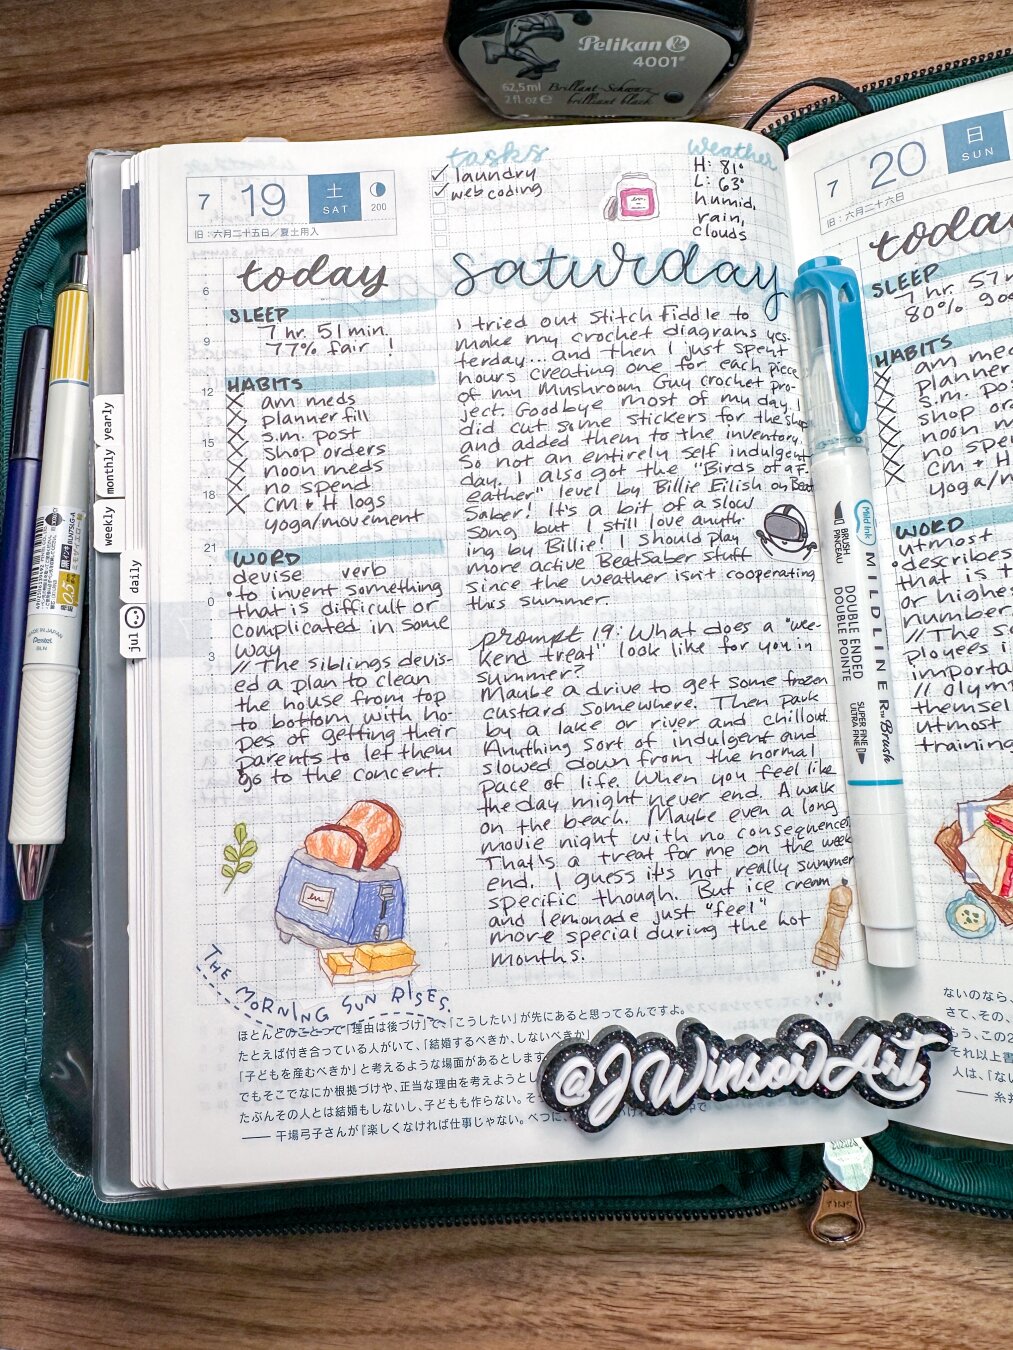 Pelikan
4001®
62,5 ml Brillant-Schwarz
2 fl.oz ℮ brilliant black
7 19 土 SAT 200
旧：六月二十五日／夏土用入
tasks
✓ laundry
✓ web coding
weather
H: 81°
L: 63°
humid,
rain,
clouds
today
SLEEP
7 hr. 51 min.
77% fair !
HABITS
am meds
planner fill
s.m. post
shop orders
noon meds
no spend
CM + H logs
yoga/movement
WORD
devise verb
• to invent something
that is difficult or
complicated in some
way
// The siblings devis-
ed a plan to clean
the house from top
to bottom with ho-
pes of getting their
parents to let them
go to the concert.
6
9
12
15
18
21
0
3
THE MORNING SUN RISES.
saturday
I tried out Stitch Fiddle to
make my crochet diagrams yes-
terday... and then I just spent
hours creating one for each piece
of my Mushroom Guy crochet pro-
ject. Goodbye most of my day. I
did cut some stickers for the shop
and added them to the inventory.
So not an entirely self indulgent
day. I also got the "Birds of a F-
eather" level by Billie Eilish on Beat
Saber! It's a bit of a slow
song but I still love anyth-
ing by Billie! I should play
more active BeatSaber stuff
since the weather isn't cooperating
this summer.
prompt 19: What does a "wee-
kend treat" look like for you in
summer?
Maybe a drive to get some frozen
custard somewhere. Then park
by a lake or river and chillout.
Anything sort of indulgent and
slowed down from the normal
pace of life. When you feel like
the day might never end. A walk
on the beach. Maybe even a long
movie night with no consequences
That's a treat for me on the week
end. I guess it's not really summer
specific though. But ice cream
and lemonade just "feel"
more special during the hot
months.
ほとんどのことって「理由は後づけ」で、「こうしたい」が先にあると思ってるんですよ。
たとえば付き合っている人がいて、「結婚するべきか、しないべきか」
「子どもを産むべきか」と考えるような場面があるとします
でもそこでなにか根拠づけや、正当な理由を考えようとし
たぶんその人とは結婚もしないし、子どもも作らない。そ
—— 干場弓子さんが『楽しくなければ仕事じゃない。
@JWinsorArt
yearly
monthly
weekly
daily
jul
MADE IN JAPAN
Pentel
BLN
0.5
Mild Ink
MILDLINER™ Brush
BRUSH
PINCEAU
DOUBLE ENDED
DOUBLE POINTE
SUPER FINE
ULTRA FINE
7 20 日 SUN
旧：六月二十六日
today
SLEEP
7 hr. 57
80%
HABITS
am med
planner
s.m. po
shop or
noon m
no spe
CM + H
yoga/m
WORD
utmost
• describes
that is t
or highes
number
// The s
ployees i
importa
// Olym
themsel
utmost
training
ないのなら、
さて、その、
もう、この2
それ以上書
人は、「な